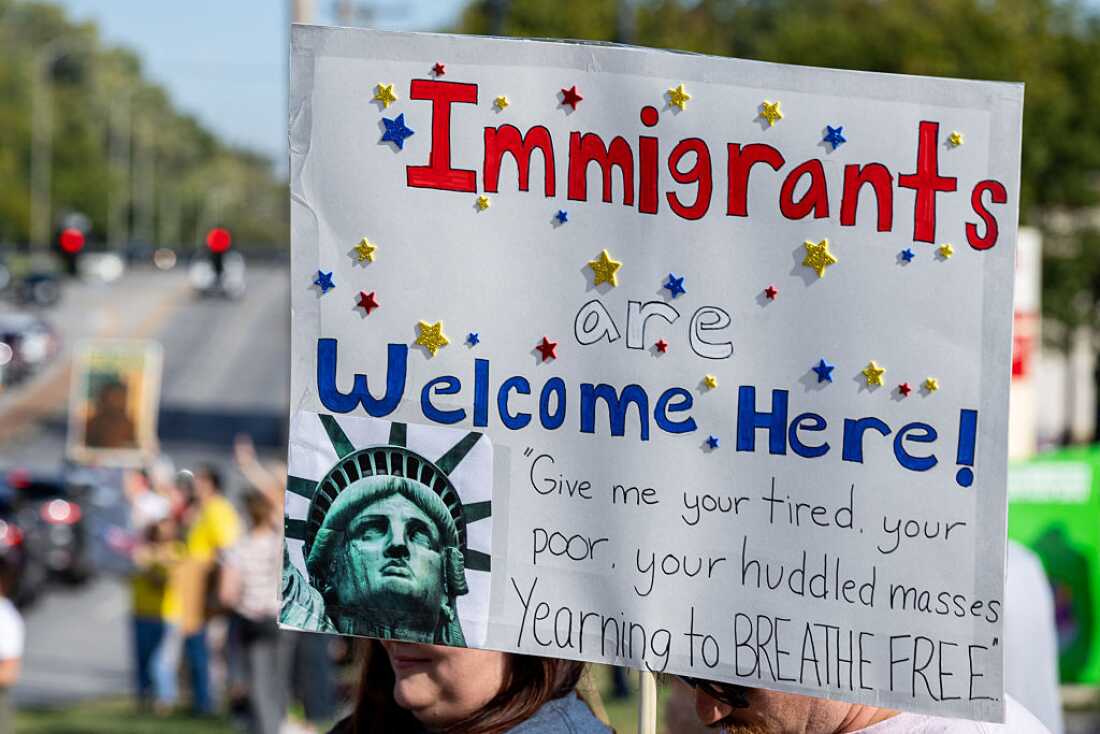 Immigrants
are
Welcome Here!
"Give me your tired, your
poor, your huddled masses
Yearning to BREATHE FREE"